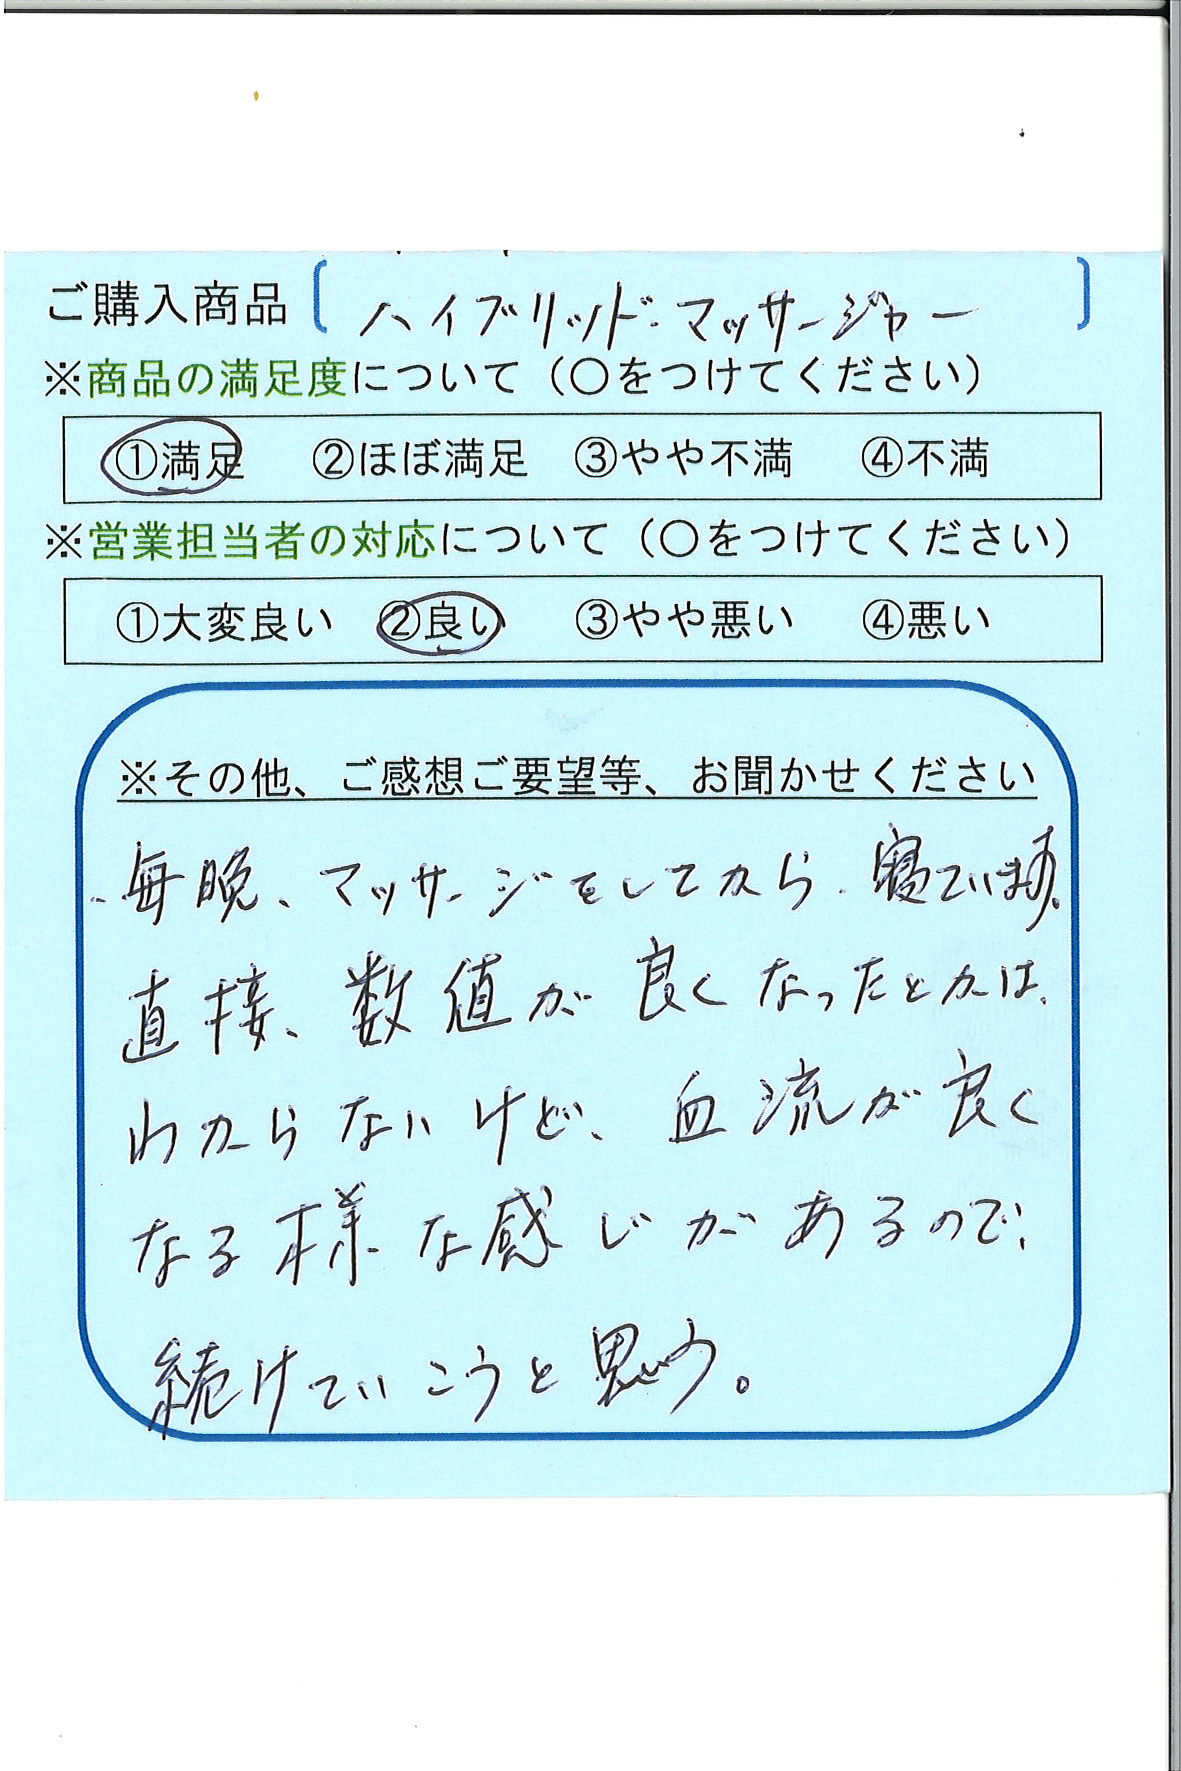 ご購入商品〔ハイブリッド・マッサージャー〕
※商品の満足度について（○をつけてください）
①満足 ②ほぼ満足 ③やや不満 ④不満
※営業担当者の対応について（○をつけてください）
①大変良い ②良い ③やや悪い ④悪い
※その他、ご感想ご要望等、お聞かせください
毎晩、マッサージをしてから、寝ています。
直接、数値が良くなったとかは、
わからないけど、血流が良く
なる様な感じがあるので、
続けていこうと思う。